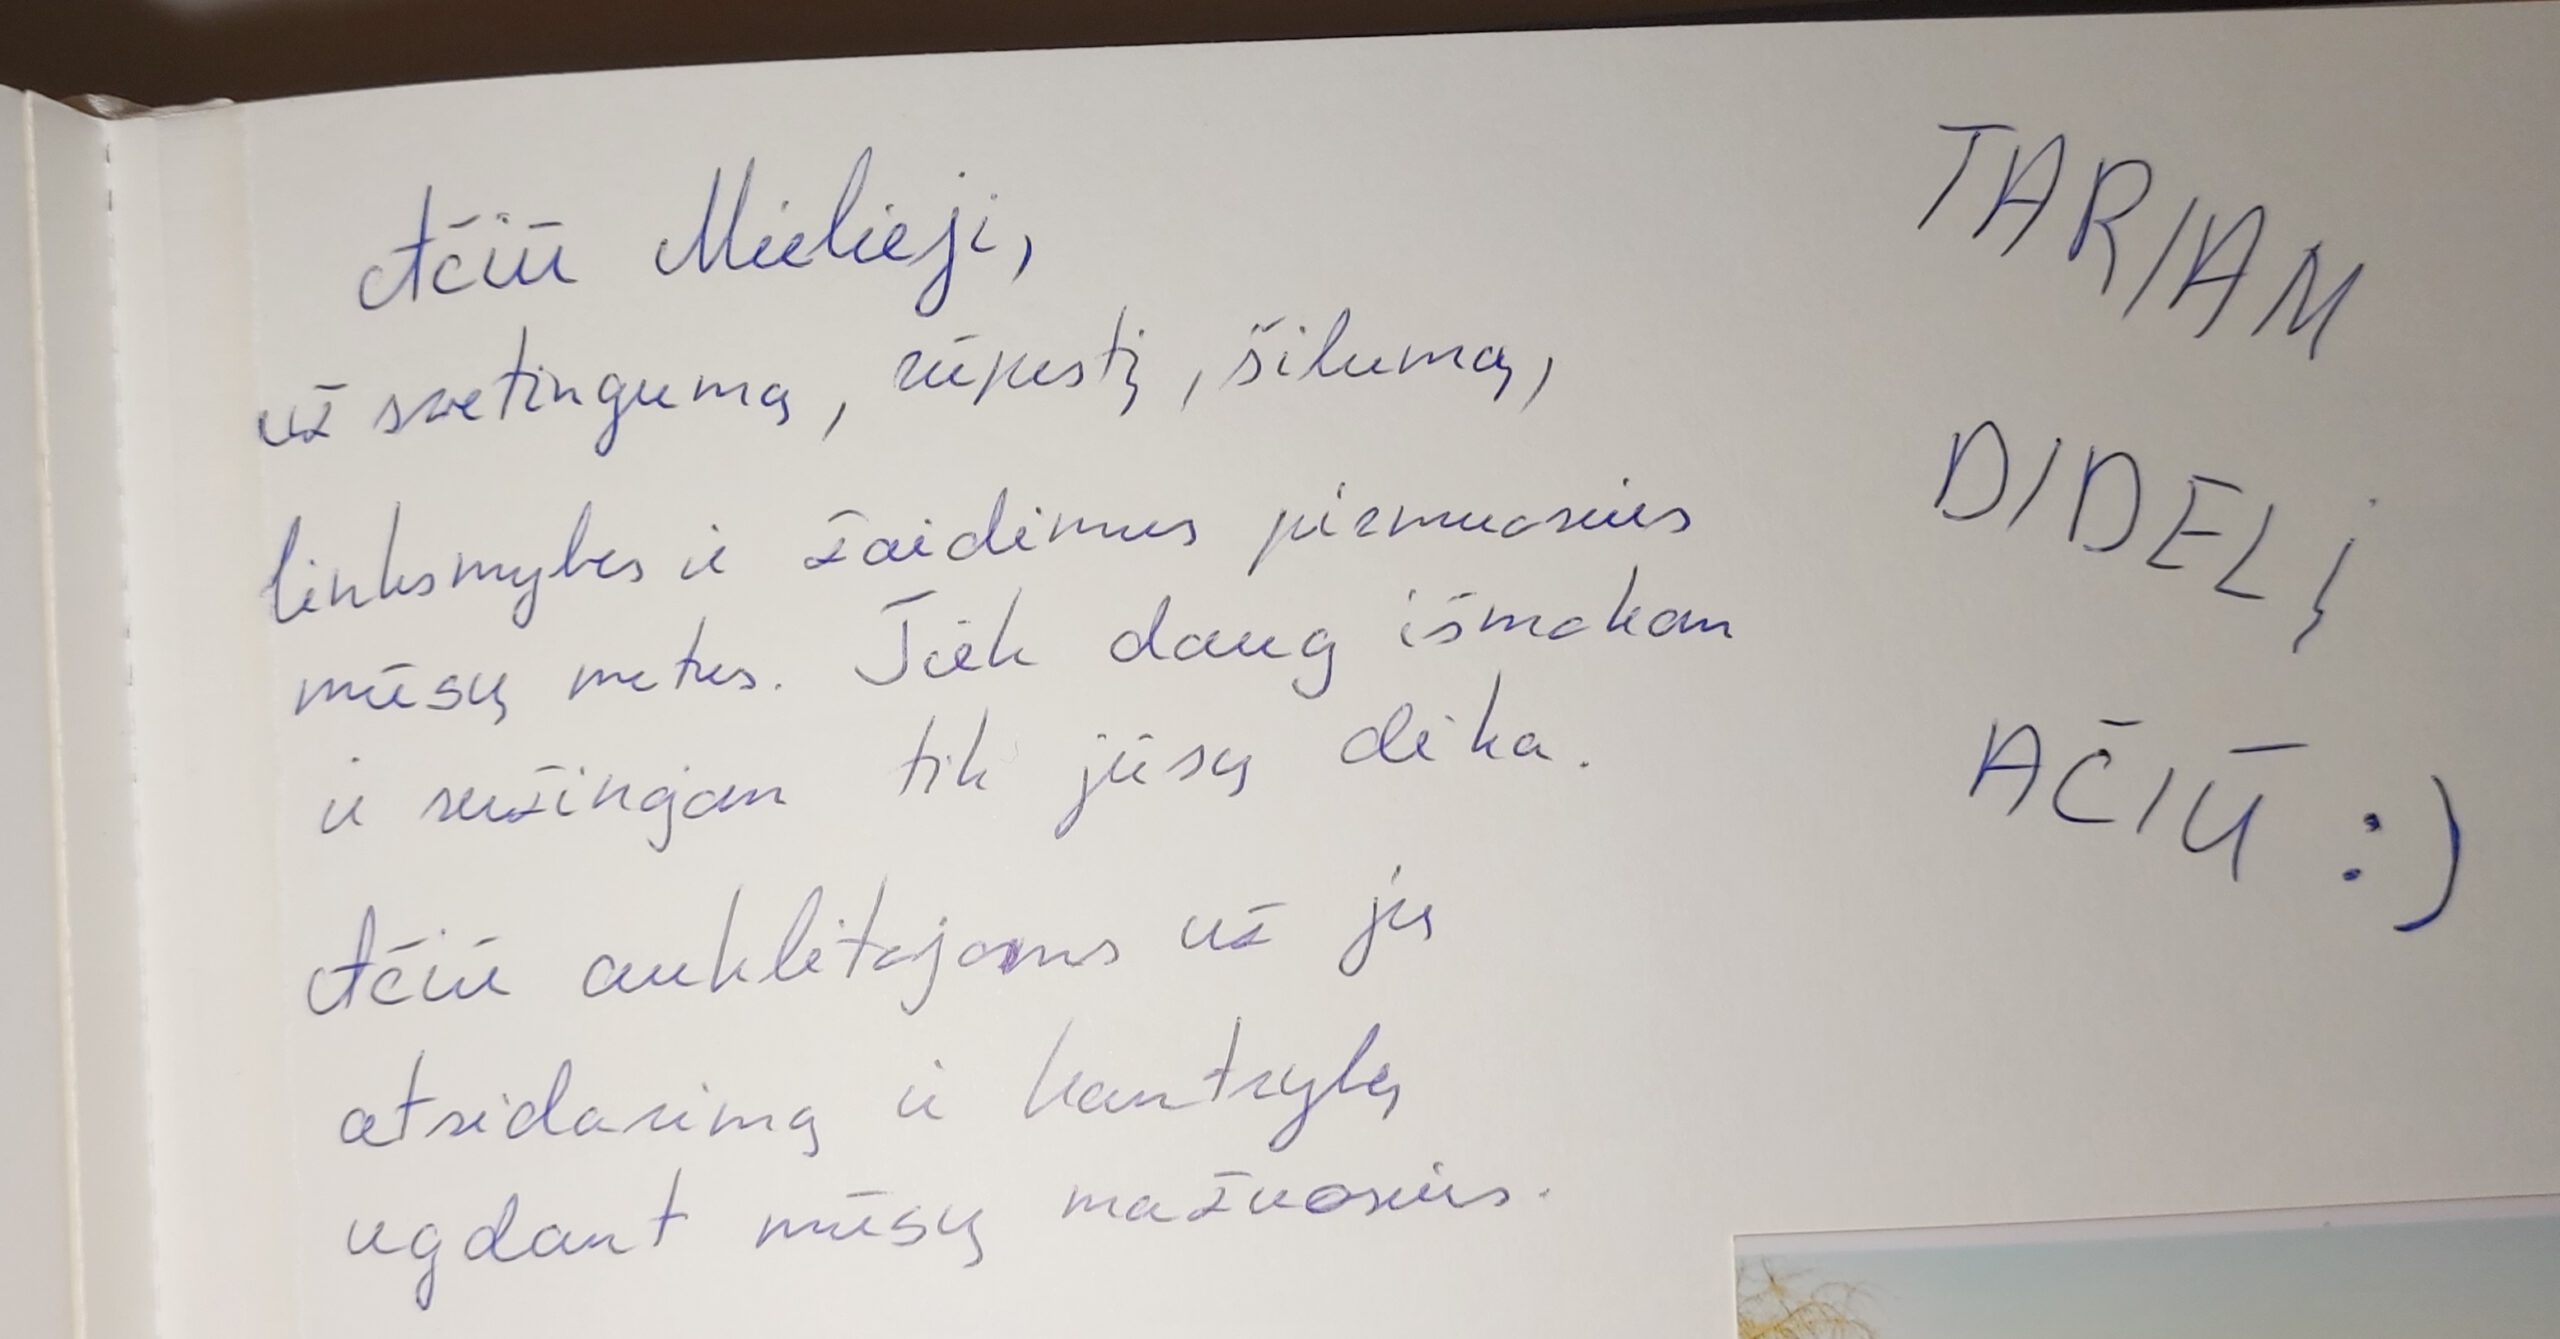 Ačiū Mielieji,
už svetingumą, rūpestį, šilumą,
linksmybes ir žaidimus pirmuosius
mūsų metus. Tiek daug išmokom
ir sužinojom tik jūsų dėka.
Ačiū auklėtojoms už jų
atsidavimą ir kantrybę
ugdant mūsų mažuosius.
TARIAM
DIDELĮ
AČIŪ :)